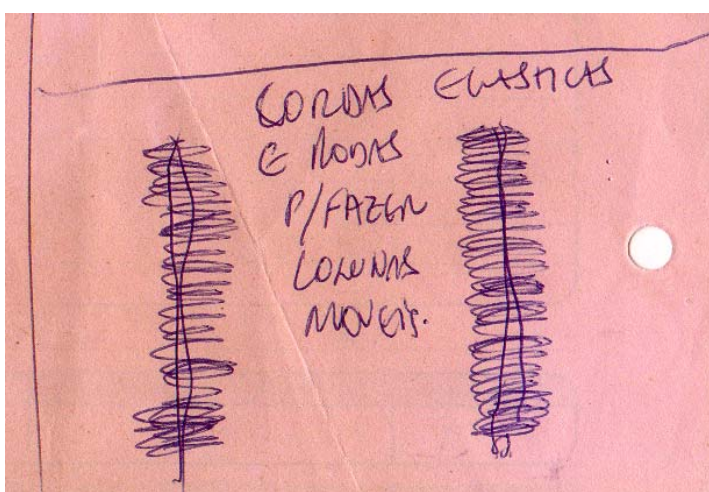 CORDAS ELASTICAS
E RODAS
P/FAZER
COLUNAS
MOVEIS.